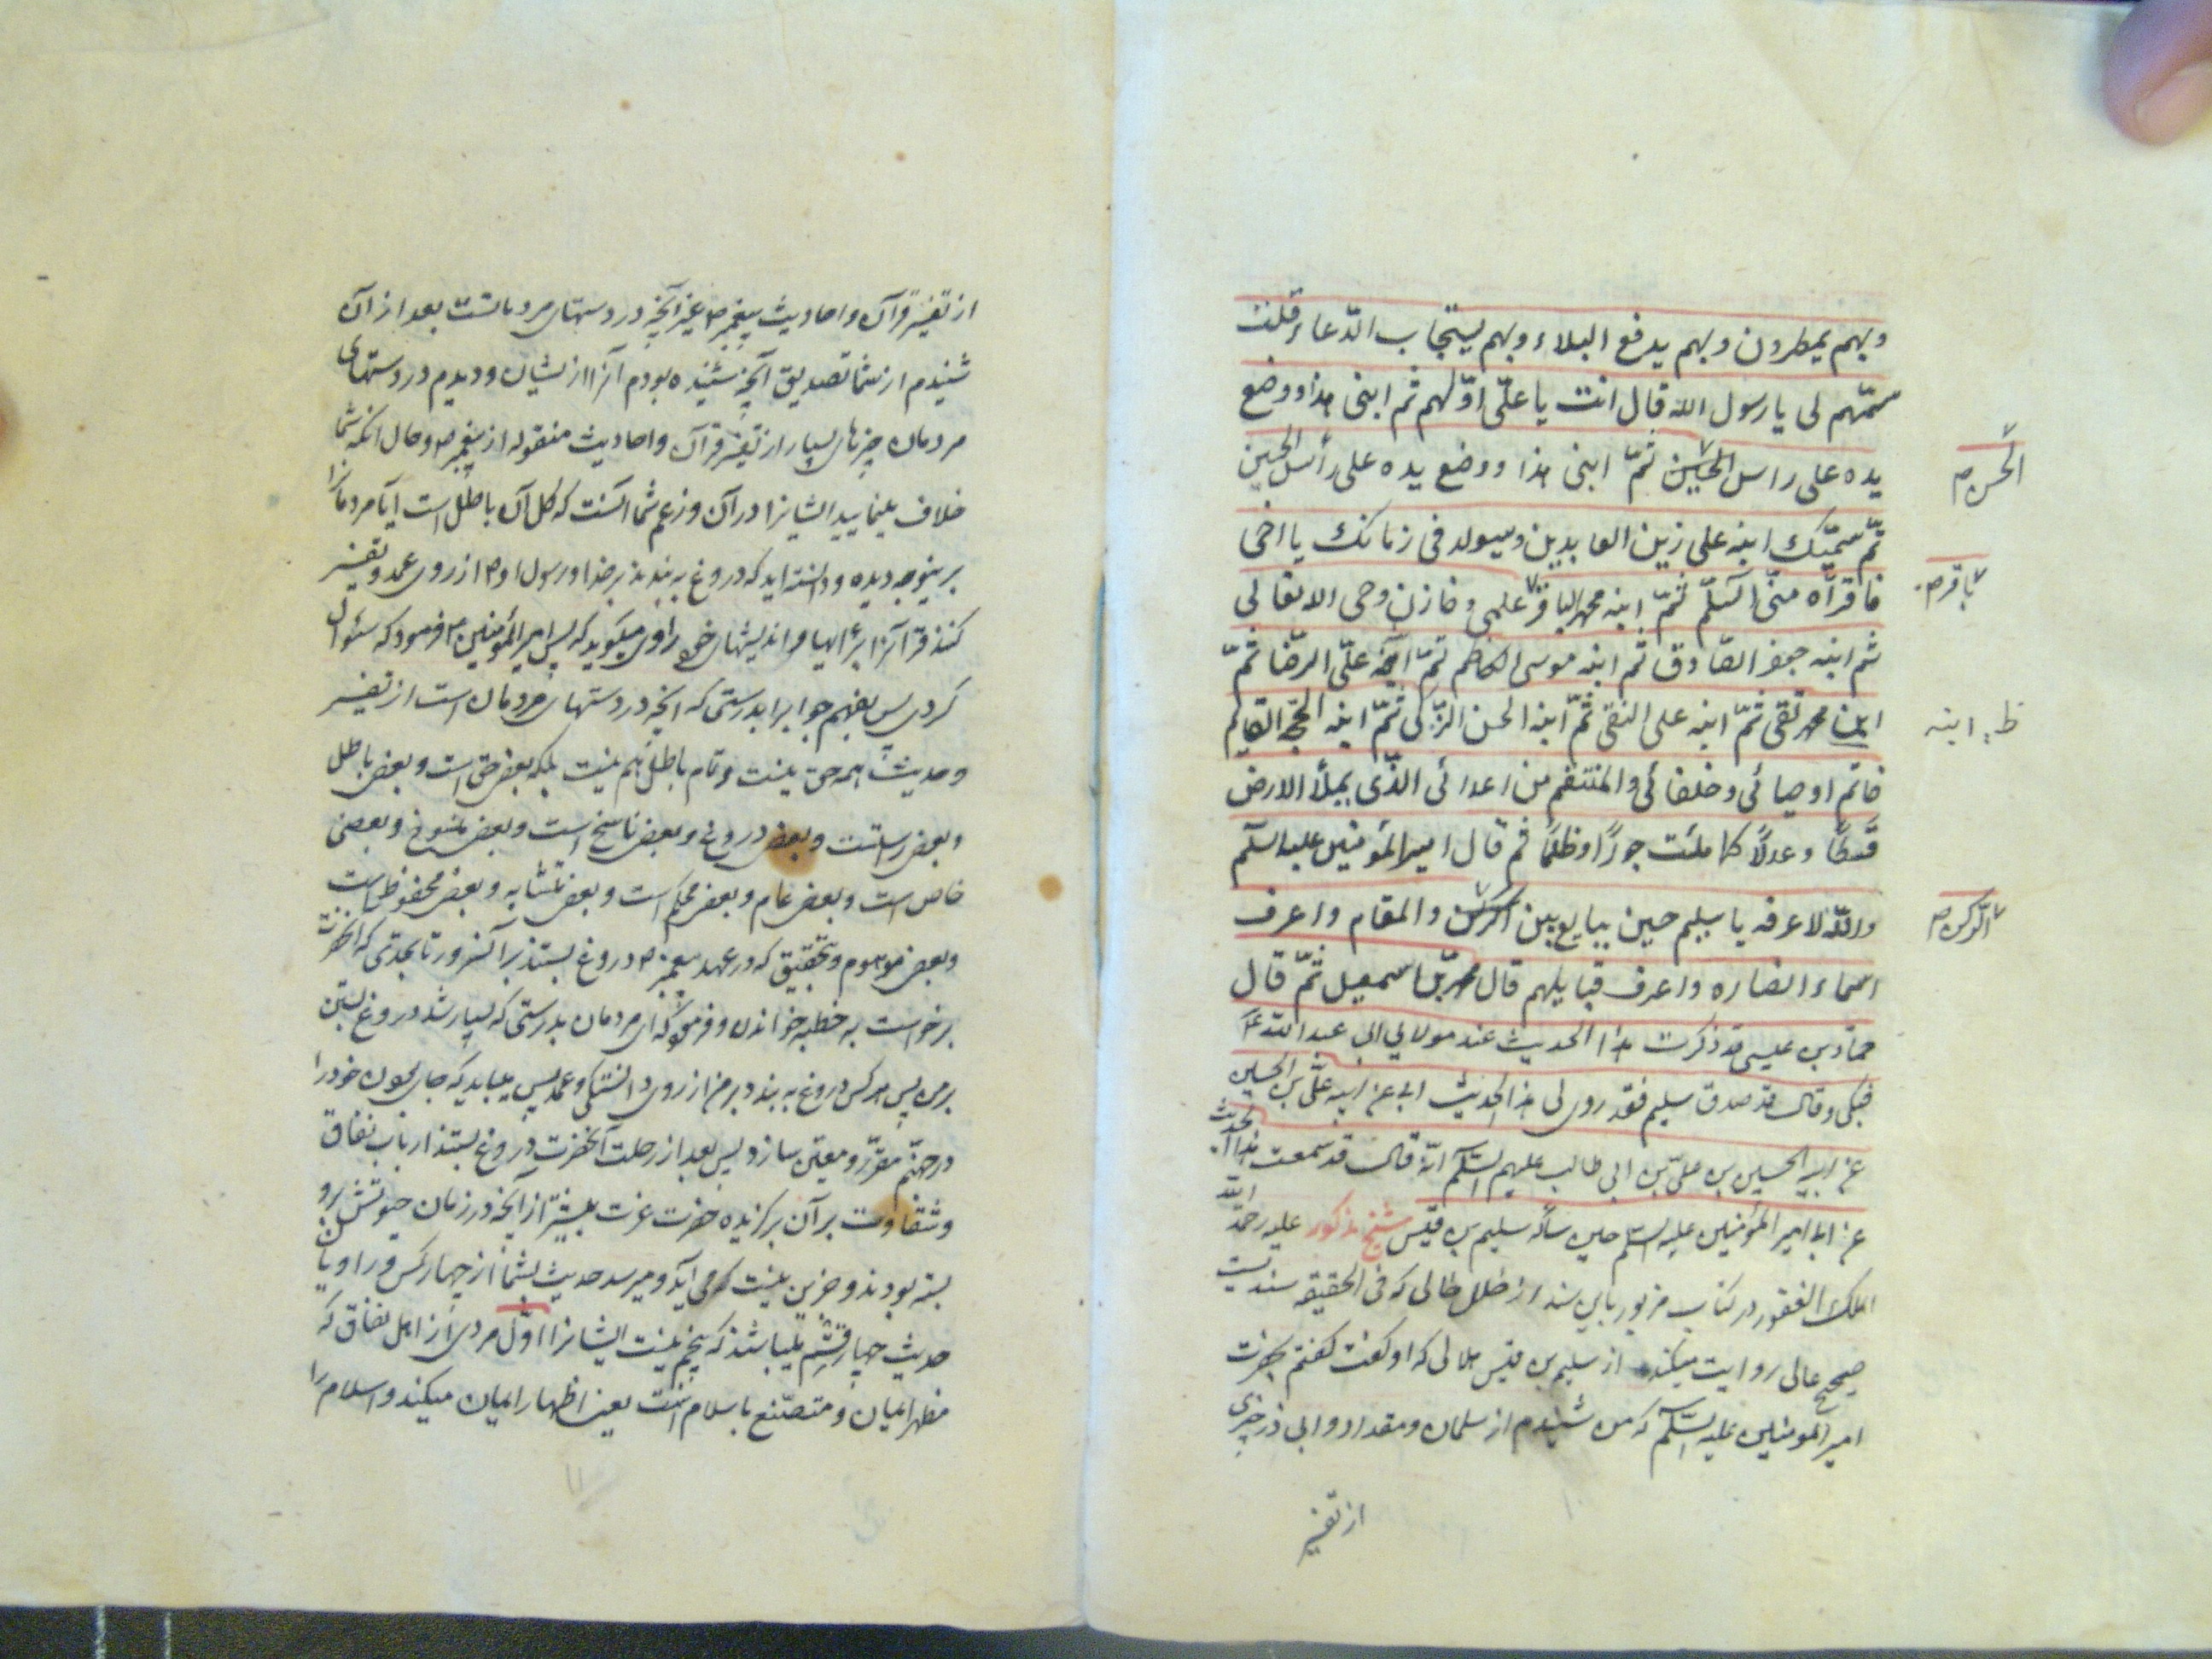 وبهم يمطرون وبهم يدفع البلاء وبهم يستجاب الدّعاء قلت
سمّهم لى يا رسول الله قال انت يا علىّ اوّلهم ثم ابنى هذا ووضع
يده على راس الحسين ثمّ ابنى هذا ووضع يده على رأس الحسين
الحسن م
ثمّ سميّك ابنه على زين العابدين وسيولد فى زمانك يا اخى
فاقرأه منّى السّلم ثمّ ابنه محمد الباقر علمى وخازن وحى الله تعالى
باقر م
ثم ابنه جعفر الصّادق ثم ابنه موسى الكاظم ثمّ ابنه علىّ الرّضا ثمّ
ابن محمد تقى ثمّ ابنه على النقى ثمّ ابنه الحسن الزّكى ثمّ ابنه الحجّه القايم
ظ ابنه
خاتم اوصيائى وخلفائى والمنتقم من اعدائى الّذى يملأ الارض
قسطًا وعدلاً كما ملئت جورًا وظلمًا ثم قال امير المؤمنين عليه السّلم
والله لاعرفه يا سليم حين يبايع بين الركن والمقام واعرف
الرّكن م
اسماء انصاره واعرف قبايلهم قال محمد بن اسمعيل ثمّ قال
حمّاد بن عيسى قد ذكرت هذا الحديث عند مولائي ابى عبد الله ع
فبكى وقال قد صدق سليم فقد روى لى هذا الحديث ابى عن ابيه علىّ بن الحسين
عن ابيه الحسين بن علىّ بن ابى طالب عليهم السّلم انّه قال قد سمعت هذا الحديث
عن ابى امير المؤمنين عليه السّلم حين سأله سليم بن قيس شيخ مذكور عليه رحمة الله
الملك الغفور در كتاب مزبور باين سند از خلل خالى كه فى الحقيقه سنديست
صحيح عالى روايت ميكند از سليم بن قيس هلالى كه او كفت كفتم بحضرت
امير المومنين عليه السّلم كه من شنيدم از سلمان ومقداد وابى ذر چيزى
از تفسير
از تفسير قرآن واحاديث پيغمبر ص غير آنچه در دستهاى مردمانست بعد از آن
شنيدم از شما تصديق آنچه شنيده بودم آنرا از ايشان وديدم در دستهاى
مردمان چيزهاى بسيار از تفسير قرآن واحاديث منقوله از پيغمبر ص وحال انكه شما
خلاف مينماييد ايشانرا در آن وزعم شما آنست كه كل آن باطل است آيا مردمانرا
برينوجه ديده ودانسته ايد كه دروغ به بندند بر خدا ورسول او ص از روى عمد وتفسير
كنند قرآنرا براى‌ها وانديشهاى خود راوى ميكويد كه پس امير المؤمنين ع فرمود كه سئوال
كردى پس بفهم جوابرا بدرستى كه آنچه در دستهاى مردمان است از تفسير
وحديث همه حق نيست وتمام باطل هم نيست بلكه بعضى حق است وبعضى باطل
وبعضى راستست وبعضى دروغ وبعضى ناسخ است وبعضى منسوخ وبعضى
خاص است وبعضى عام وبعضى محكم است وبعضى متشابه وبعضى محفوظ است
وبعضى موهوم وبتحقيق كه در عهد پيغمبر ص دروغ بستند بر آنسرور تا بحدّى كه آنحضرت
برخواست به خطبه خواندن وفرمود كه اى مردمان بدرستى كه بسيار شد دروغ بستن
بر من پس هر كس دروغ به بندد بر من از روى دانستكى وعمد پس ميبايد كه جاى كون خود را
در جهنّم مقرّر ومعيّن سازد پس بعد از رحلت آنحضرت دروغ بستند ارباب نفاق
وشقاوت بر آن بركزيده حضرت عزت بيشتر از آنچه در زمان حيوتش برو
بسته بودند وجز اين نيست كه مى آيد وميرسد حديث بشما از چهار كس وراويان
حديث چهار قسم ميباشند كه پنجم نيست ايشانرا اوّل مردى از اهل نفاق كه
مظهر ايمان ومتصنّع باسلام است يعنى اظهار ايمان ميكند واسلام را
۱۱